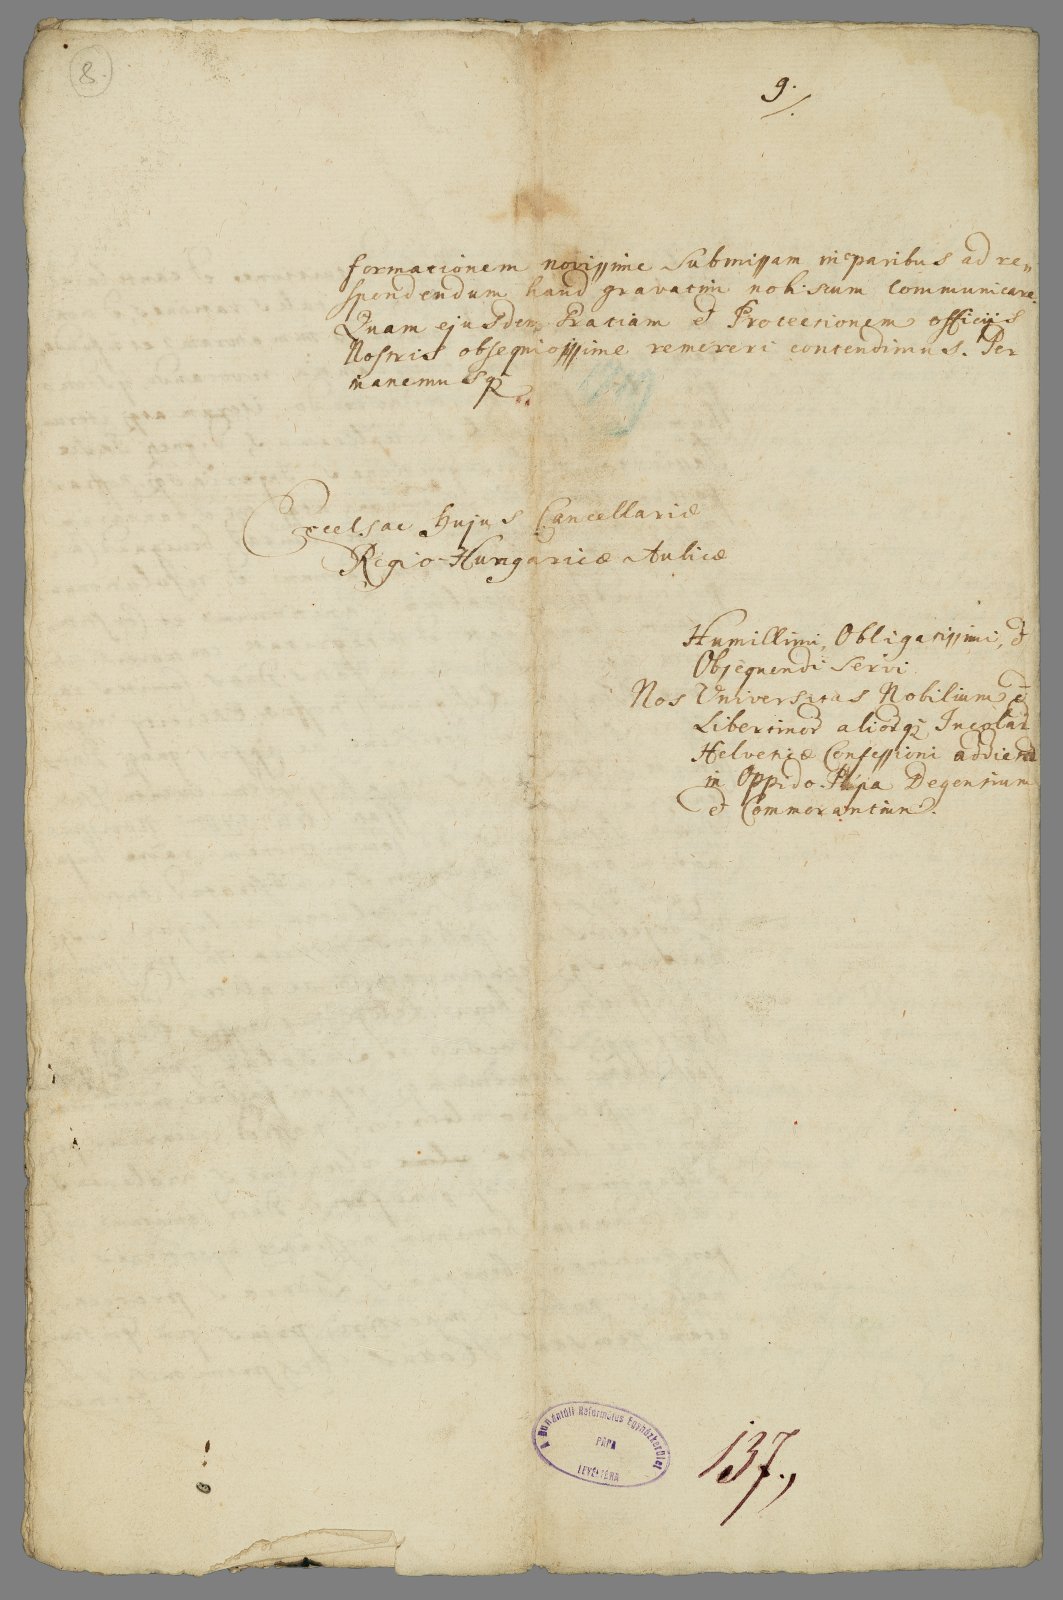 8.
9.
formationem novissime Submissam in paribus ad re„
spondendum haud gravatim nobiscum Communicare.
Quam ejusdem Gratiam et Protectionem officiis
Nostris obsequiosissime remereri contendimus. Per
manemusq
Excelsae Hujus Cancellariæ
Regio-Hungaricæ Aulicæ
Humillimi, Obligatissimi, et
Obsequendi Servi
Nos Universitas Nobilium et
Libertinor aliorq Incolar
Helveticæ Confessioni addictor
in Oppido Pápa Degentium
et Commorantium.
A Dunántúli Református Egyházkerület
PÁPA
LEVÉLTÁRA
137.,